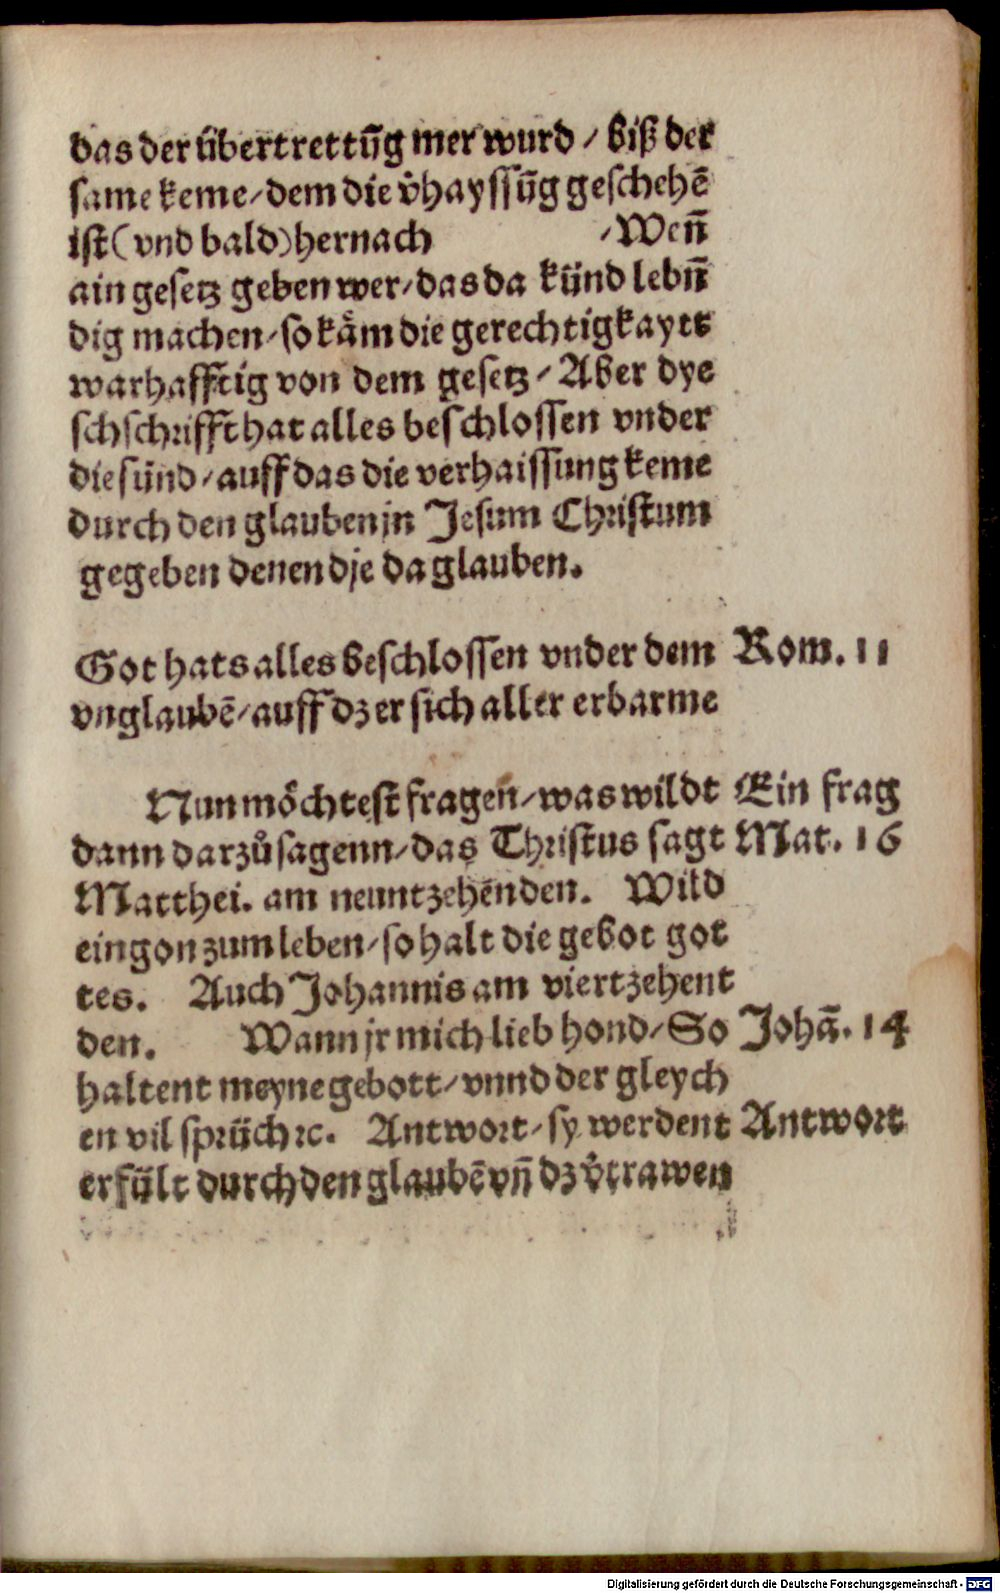 das der übertrettũg mer wurd / biß der
same keme / dem die v̊hayssũg geschehẽ
ist (vnd bald) hernach / Weñ
ain gesetz geben wer / das da künd lebñ
dig machen / so kåm die gerechtigkaytt
warhafftig von dem gesetz / Aber dye
schschrifft hat alles beschlossen vnder
die sünd / auff das die verhaissung keme
durch den glauben jn Jesum Christum
gegeben denen dje da glauben.
Got hats alles beschlossen vnder dem Rom. 11
vnglaubẽ / auff dz er sich aller erbarme
Nun möchtest fragen / was wildt Ein frag
dann darzů sagenn / das Christus sagt Mat. 16
Matthei. am neuntzehenden. Wild
ein gon zum leben / so halt die gebot got
tes. Auch Johannis am viertzehent
den. Wann jr mich lieb hond / So Johã. 14
haltent meyne gebott / vnnd der gleych
en vil sprüch ⁊c. Antwort / sy werdent Antwort
erfült durch den glaubẽ vñ dz v̊trawen
Digitalisierung gefördert durch die Deutsche Forschungsgemeinschaft - DFG